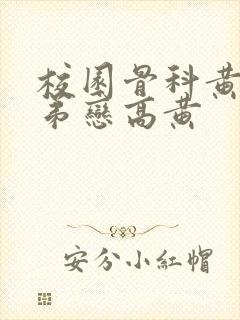 校園骨科黃
弟戀高黃
安分小紅帽